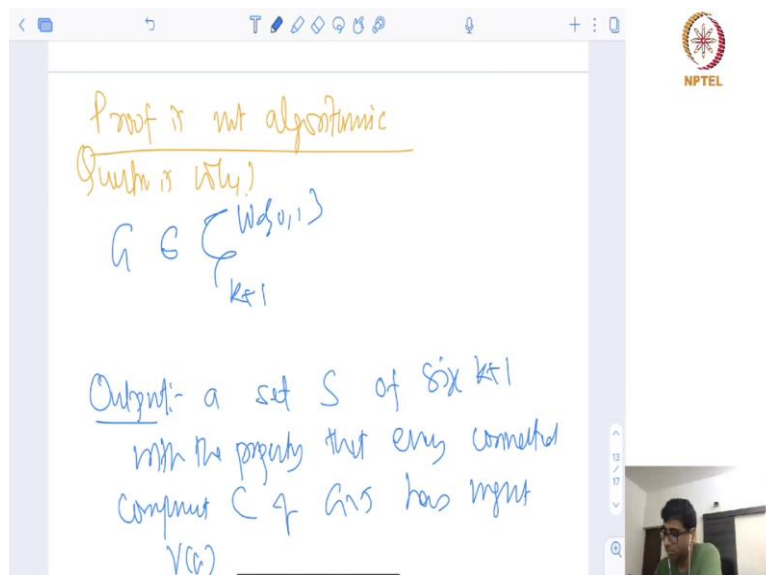 Proof is not algorithmic
Question is why?
G ∈ C W{0,1}
k+1
Output:- a set S of size k+1
with the property that every connected
component C of G\S has weight
V(G)
NPTEL
13
17